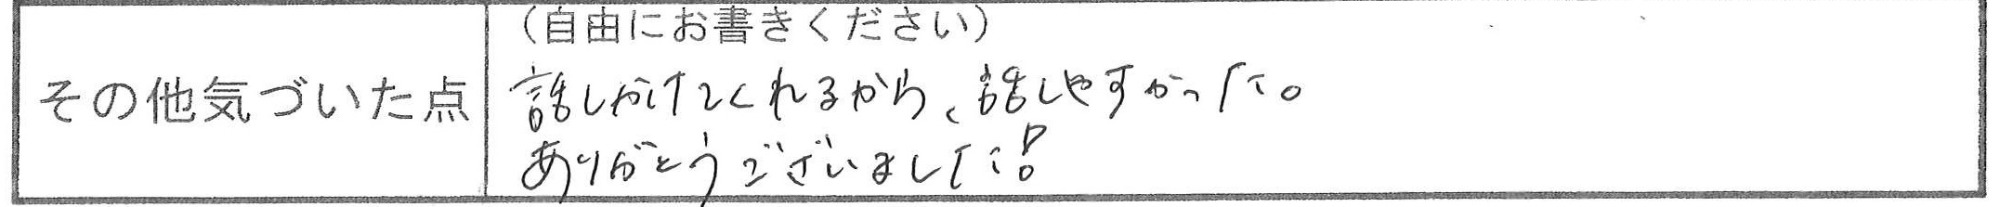 その他気づいた点
（自由にお書きください）
話しかけてくれるから、話しやすかった。
ありがとうございました!